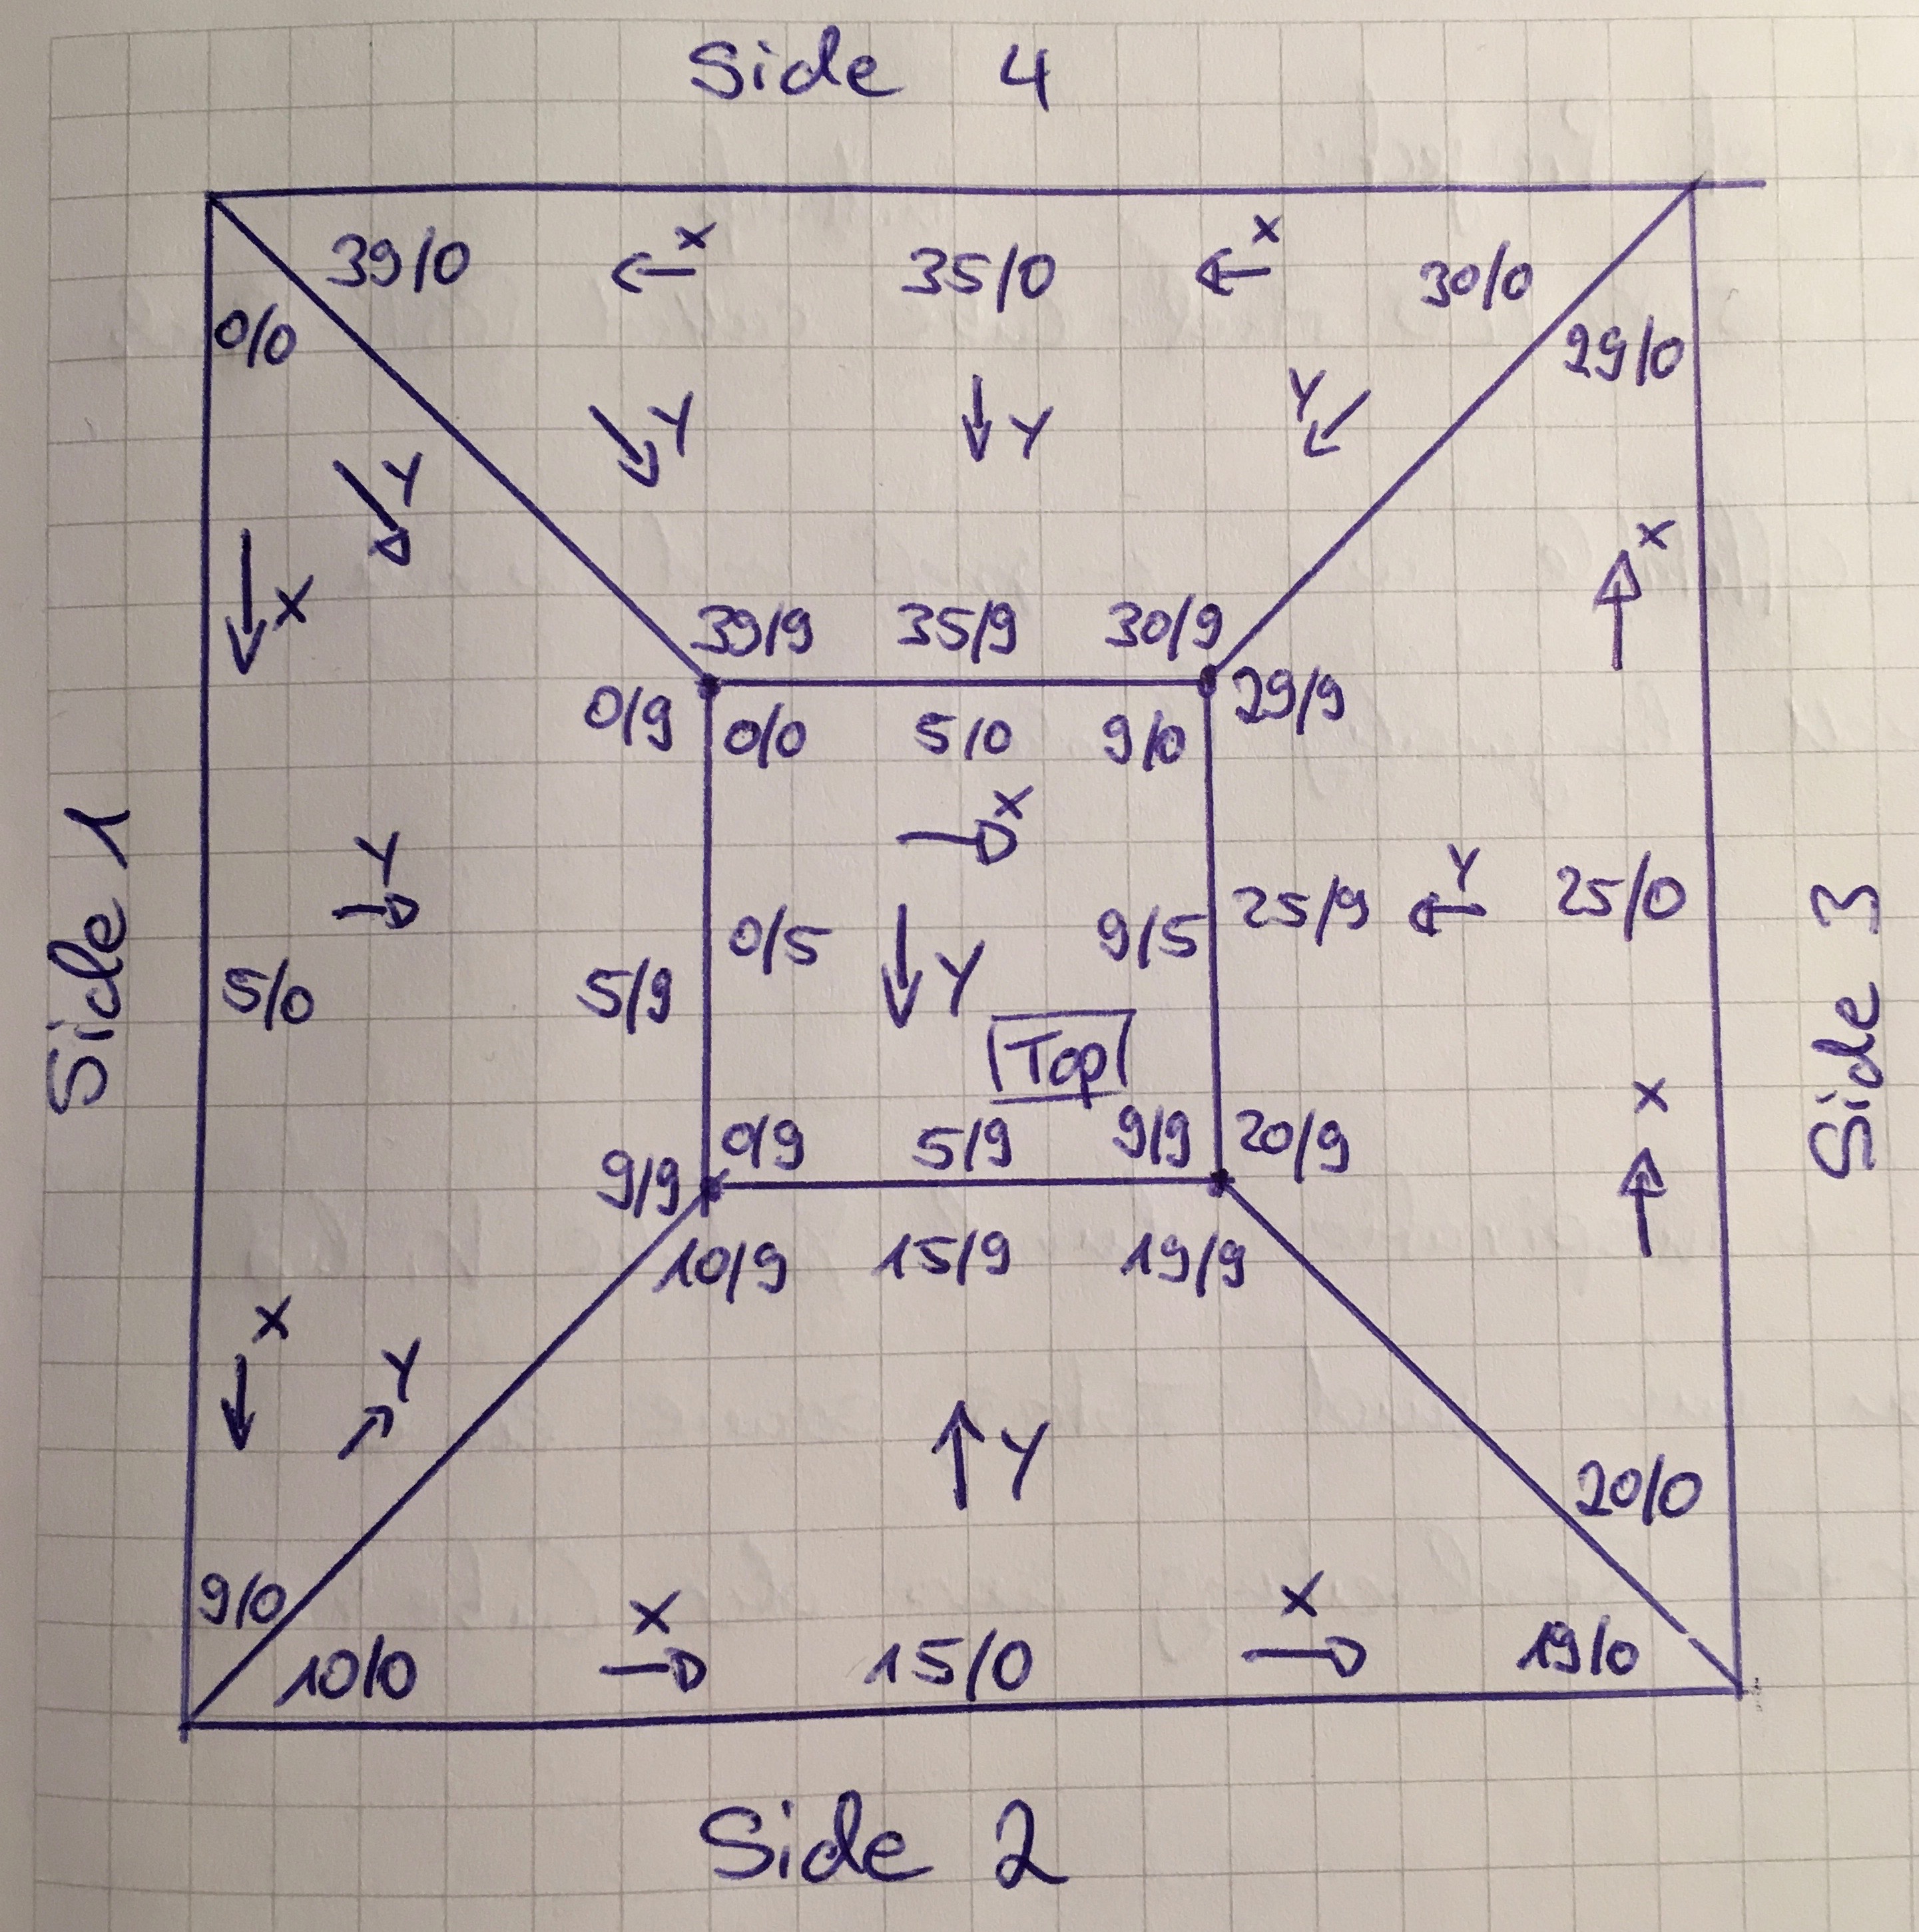 Side 4
39/0 ← X 35/0 ← X 30/0
0/0 29/0
Y Y Y
Y
X X
39/9 35/9 30/9
0/9 29/9
0/0 5/0 9/0
X
Side 1
Y Y
5/0 5/9 0/5 9/5 25/9 25/0
Y
Side 3
Top
X
0/9 5/9 9/9 20/9
9/9
10/9 15/9 19/9
X
Y Y
20/0
9/0
X X
10/0 15/0 19/0
Side 2